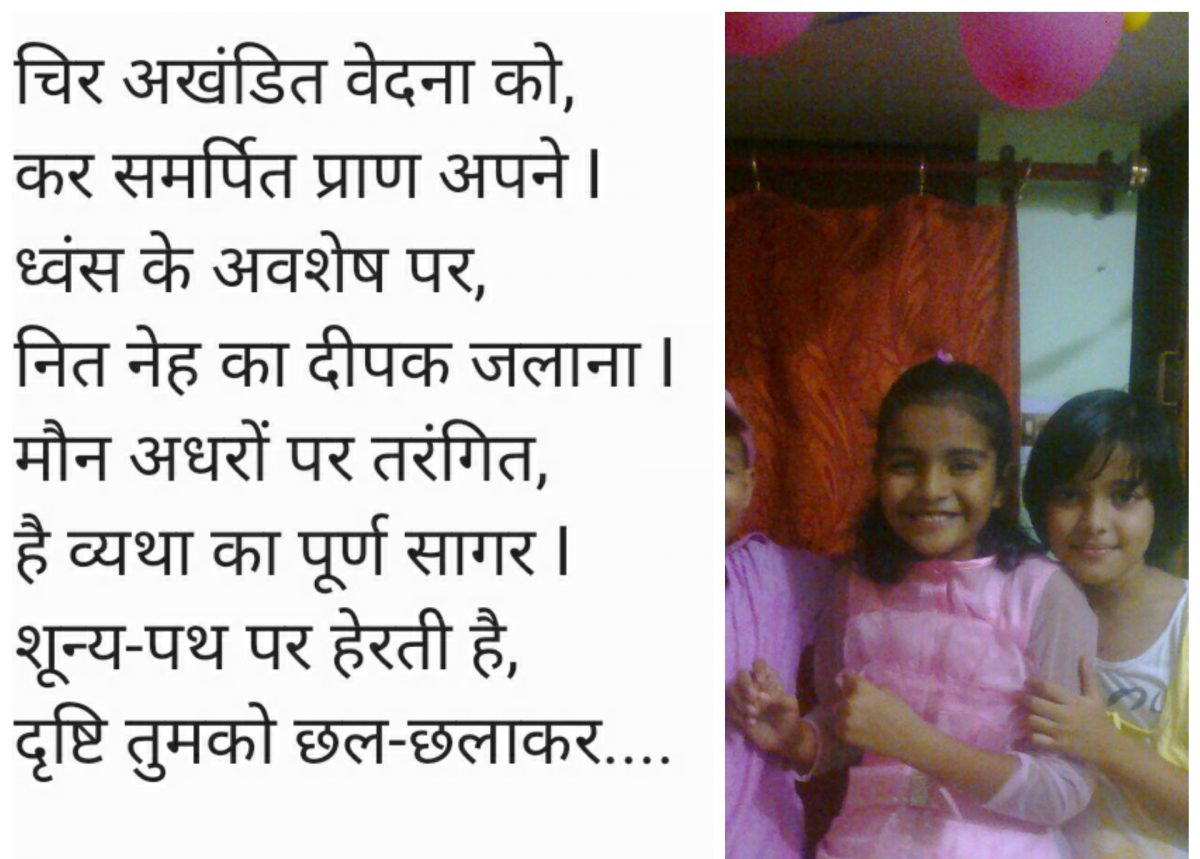 चिर अखंडित वेदना को,
कर समर्पित प्राण अपने l
ध्वंस के अवशेष पर,
नित नेह का दीपक जलाना l
मौन अधरों पर तरंगित,
है व्यथा का पूर्ण सागर l
शून्य-पथ पर हेरती है,
दृष्टि तुमको छल-छलाकर....